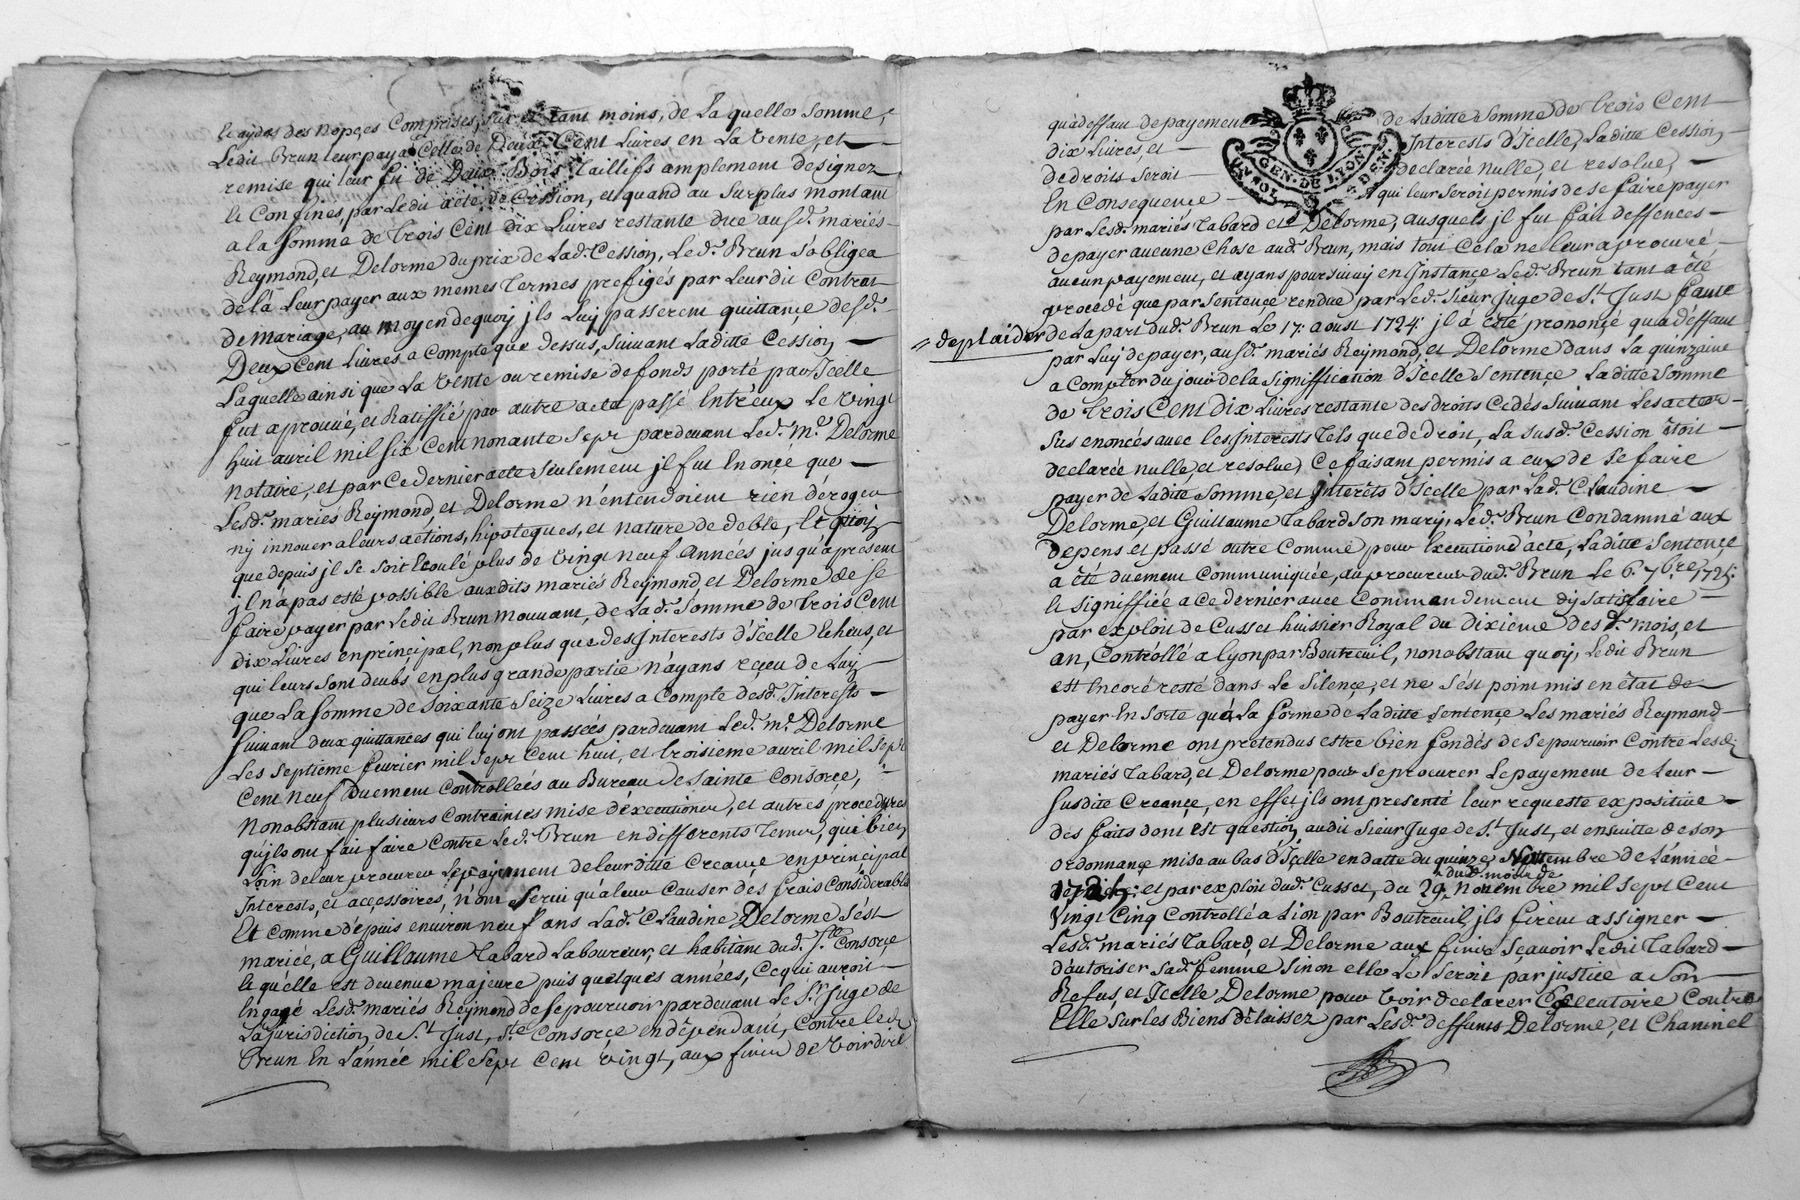 les aydes des nopces Comprises, sur et tant moins, de La quelle somme,
Ledit Brun leur paya Celle de Deux Cent Livres en La Vente, et
remise qui leur fu de Deux Bois Taillifs amplement designez
et Confines, par Ledit acte de Cession, et quand au surplus montant
a la somme de trois Cent dix Livres restante due ausd. mariés
Reymond, et Delorme du prix de Lad. Cession, Le d. Brun s'obligea
de la Leur payer aux memes termes prefigés par Leur dit Contrat
de Mariage, au moyen de quoy jls Luy passerent quittançe desd.
Deux Cent Livres a Compte que dessus, suivant Laditte Cession
Laquelle ainsi que La Vente ou remise de fonds porté par Jcelle
fut aprouvé, et Ratiffié par autre acte passé Entr'eux Le Vingt
huit avril mil six Cent nonante sept pardevant Led. Me. Delorme
notaire, et par Ce dernier acte seulement jl fut Enonçé que
Lesd. mariés Reymond, et Delorme n'entendoient rien déroger
ny innover a leurs actions, hipoteques, et nature de debte, Et quoy
que depuis jl se soit Ecoulé plus de Vingt neuf Années jusqu'apresent
jl n'a pas esté possible auxdits mariés Reymond et Delorme de se
faire payer par Ledit Brun mouvant, de Lad. Somme de trois Cent
dix Livres en principal, non plus que des Jnterests d'Jcelle Echeus, et
qui leurs sont deubs en plus grande partie n'ayans reçeu de Luy
que La somme de soixante seize Livres a Compte desd. Jnterests
suivant deux quittances qui luy ont passées pardevant Led. me. Delorme
Les septieme fevrier mil sept Cent huit, et troisieme avril mil sept
Cent neuf Duement Controllées au Bureau de sainte Consorçe,
Nonobstant plusieurs Contraintes mise d'execution, et autres procedures
qu'jls ont fait faire Contre Led. Brun en differents Temps, qui bien
Loin de leur procurer Le payement de leurditte Creançe en principal
Jnterests, et accessoires, n'ont servi qu'a leur Causer des frais Considerables
Et comme dépuis environ neuf ans Lad. Claudine Delorme s'est
mariée, a Guillaume Tabard Laboureur, et habitant dud. Ste Consorçe
le qu'elle est devenue majeure puis quelques années, Ce qui auroit
Engagé Lesd. mariés Reymond de se pourvoir pardevant Le Sr. Juge de
La jurisdiction de St. Just, Ste Consorçe en dépendant, Contre Led.
Brun En L'année mil sept Cent Vingt, aux fins de Voir dire
qu'adeffaut de payement de Laditte Somme de trois Cent
dix Livres, et Jnterests d'Jcelle, Laditte Cession
de droits seroit declarée nulle, et resolue,
En Consequence qui leur seroit permis de se faire payer
GEN. DE LYON
par Lesd. mariés Tabard et Delorme, ausquels jl fut fait deffences
de payer aucune Chose aud. Brun, mais tout Cela ne leur a procuré
aucun payement, et ayans poursuivy en Jnstançe Led. Brun tant a été
procedé que par sentençe rendue par Led. sieur Juge de St. Just faute
= de plaider de La part dud. Brun Le 17. aoust 1724. jl a été prononçé qu'adeffaut
par Luy de payer, ausd. mariés Reymond, et Delorme dans La quinzaine
a Compter du jour de la signiffication d'Jcelle Sentençe Laditte somme
de trois Cent Dix Livres restante des droits Cedés suivant Les actes
sus enoncés avec les Jnterests Tels que de droit, La susd. Cession étoit
declarée nulle, et resolue, Ce faisant permis a eux de se faire
payer de Laditte Somme, et Jnterêts d'Jcelle par Lad. Claudine
Delorme, et Guillaume Tabard son mary, Led. Brun Condamné aux
depens et passé outre Comme pour Execution d'acte, Laditte Sentençe
a été duement Communiquée, au procureur dud. Brun Le 6. 7bre. 1724.
et signiffiée a Ce dernier avec Commandement d'y satisfaire
par exploit de Cusset huissier Royal du dixieme desd. mois, et
an, Contrôllé a lyon par Boutreuil, nonobstant quoy, Ledit Brun
est Encoré resté dans Le Silençe, et ne s'est point mis en êtat de
payer En sorte qu'a La forme de Laditte sentençe Les mariés Reymond
et Delorme ont pretendus estre bien fondés de se pourvoir Contre Lesd.
mariés Tabard, et Delorme pour se procurer Le payement de Leur
susdite Creançe, en effet jls ont presenté leur requeste expositive
des faits dont est question, audit sieur Juge de St. Just, et ensuitte de son
ordonnançe mise au bas d'Jcelle en datte du quinze Novembre de L'année
et par exploit dud. Cusset, du 29. novembre mil sept Cent
Vingt Cinq Controllé a Lion par Boutreuil jls firent assigner
Lesd. mariés Tabard, et Delorme aux fins sçavoir Ledit Tabard
d'autoriser sad. femme sinon elle Le seroit par justice a son
Refus, et Jcelle Delorme pour Voir declarer Executoire Contre
Elle sur les Biens délaissez par Lesd. deffunts Delorme, et Chaminel